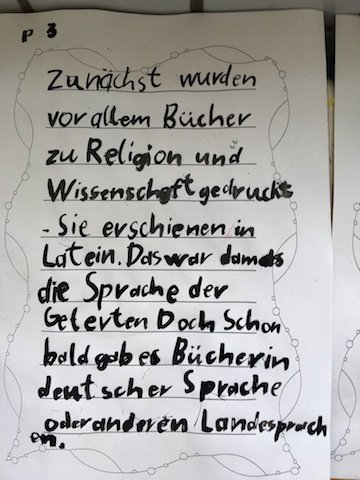 P 3
Zunächst wurden
vor allem Bücher
zu Religion und
Wissenschaft gedruckt
. Sie erschienen in
Latein. Das war damals
die Sprache der
Gelerten Doch Schon
bald gab es Bücher in
deutscher Sprache
oder anderen Landesprach
en.